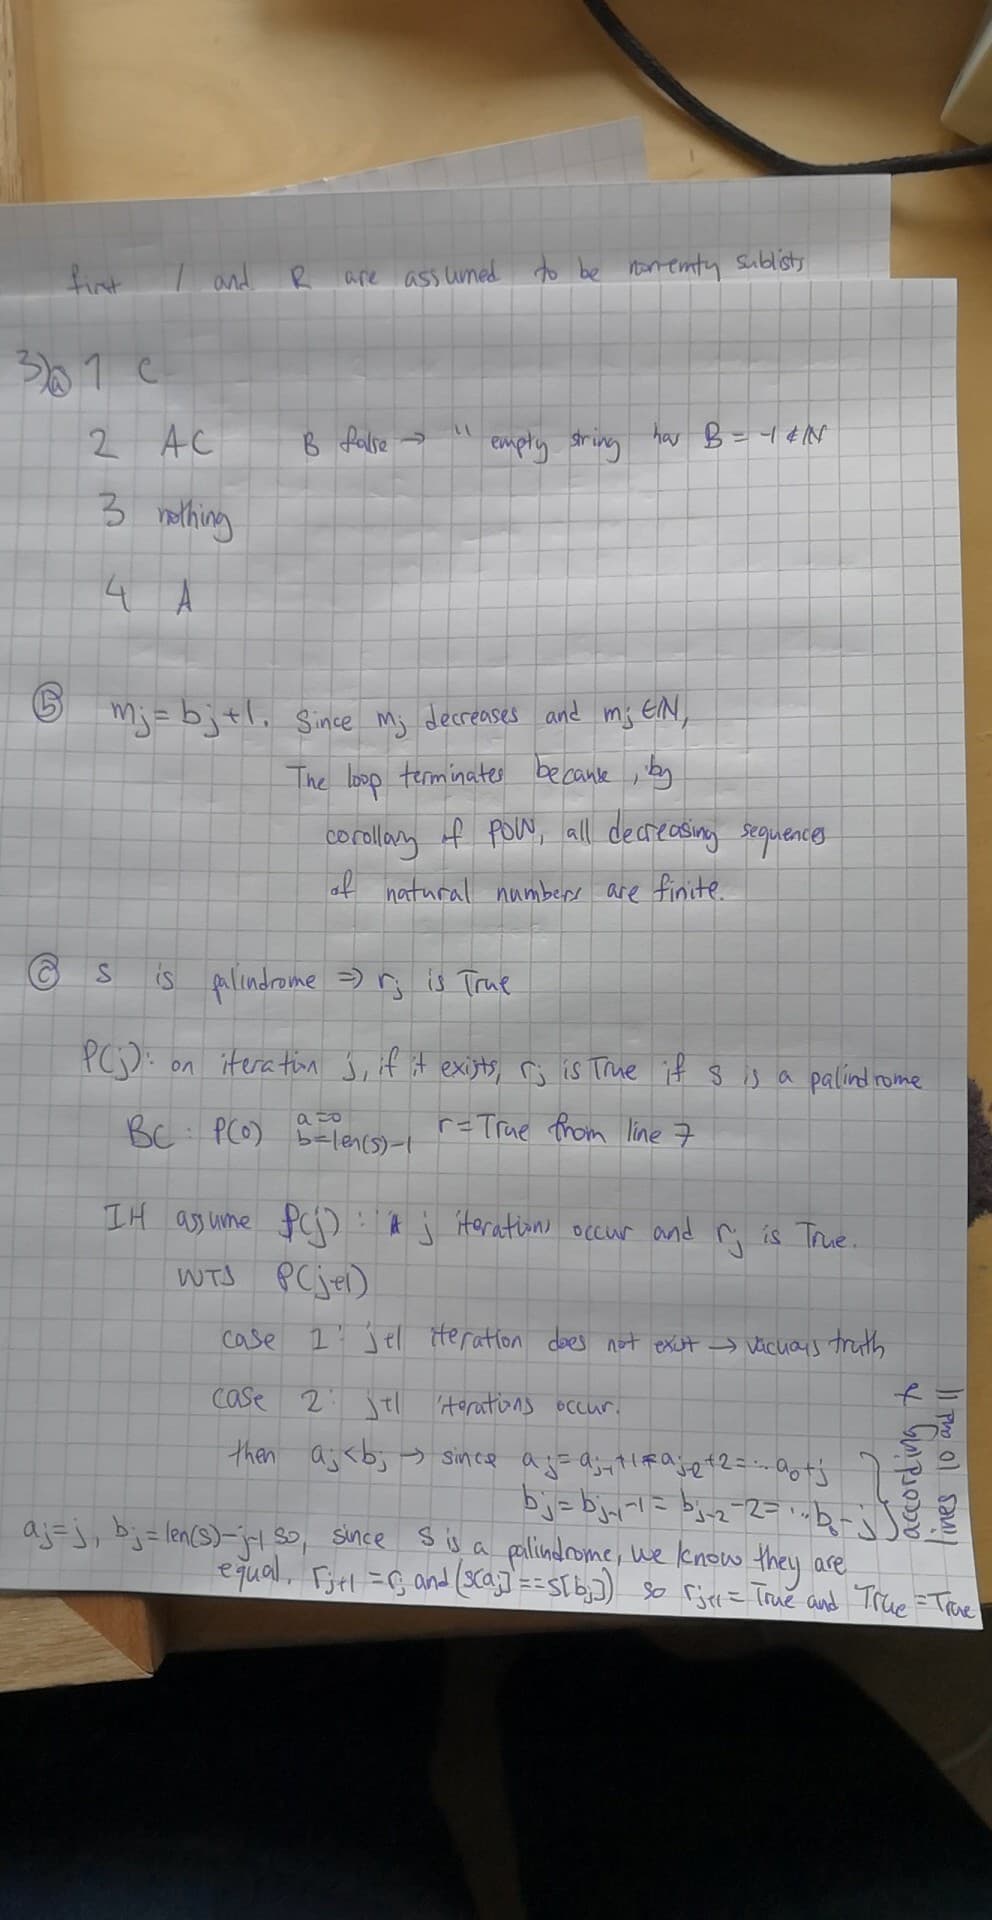 first l and R are assumed to be nonemty sublists
3)ⓐ 1 C
2 AC B false → '' empty string has B = -1 ∉ ℕ
3 nothing
4 A
ⓑ mⱼ = bⱼ + 1. Since mⱼ decreases and mⱼ ∈ ℕ,
The loop terminates because, by
corollary of POW, all decreasing sequences
of natural numbers are finite.
ⓒ s is palindrome ⇒ rⱼ is True
P(j): on iteration j, if it exists, rⱼ is True if s is a palindrome
BC: P(0) a=0 b=len(s)-1 r=True from line 7
IH assume P(j): j iterations occur and rⱼ is True.
WTS P(j+1)
case 1: j+1 iteration does not exist → vacuous truth
case 2: j+1 iterations occur.
then aⱼ<bⱼ → since aⱼ = aⱼ₋₁+1 = aⱼ₋₂+2 = … a₀+j
bⱼ = bⱼ₋₁-1 = bⱼ₋₂-2 = … b₀-j
according to
lines 10 and 11
aⱼ=j, bⱼ=len(s)-j-1 so, since s is a palindrome, we know they are
equal. rⱼ₊₁ = rⱼ and (s[aⱼ]==s[bⱼ]) so rⱼ₊₁ = True and True = True